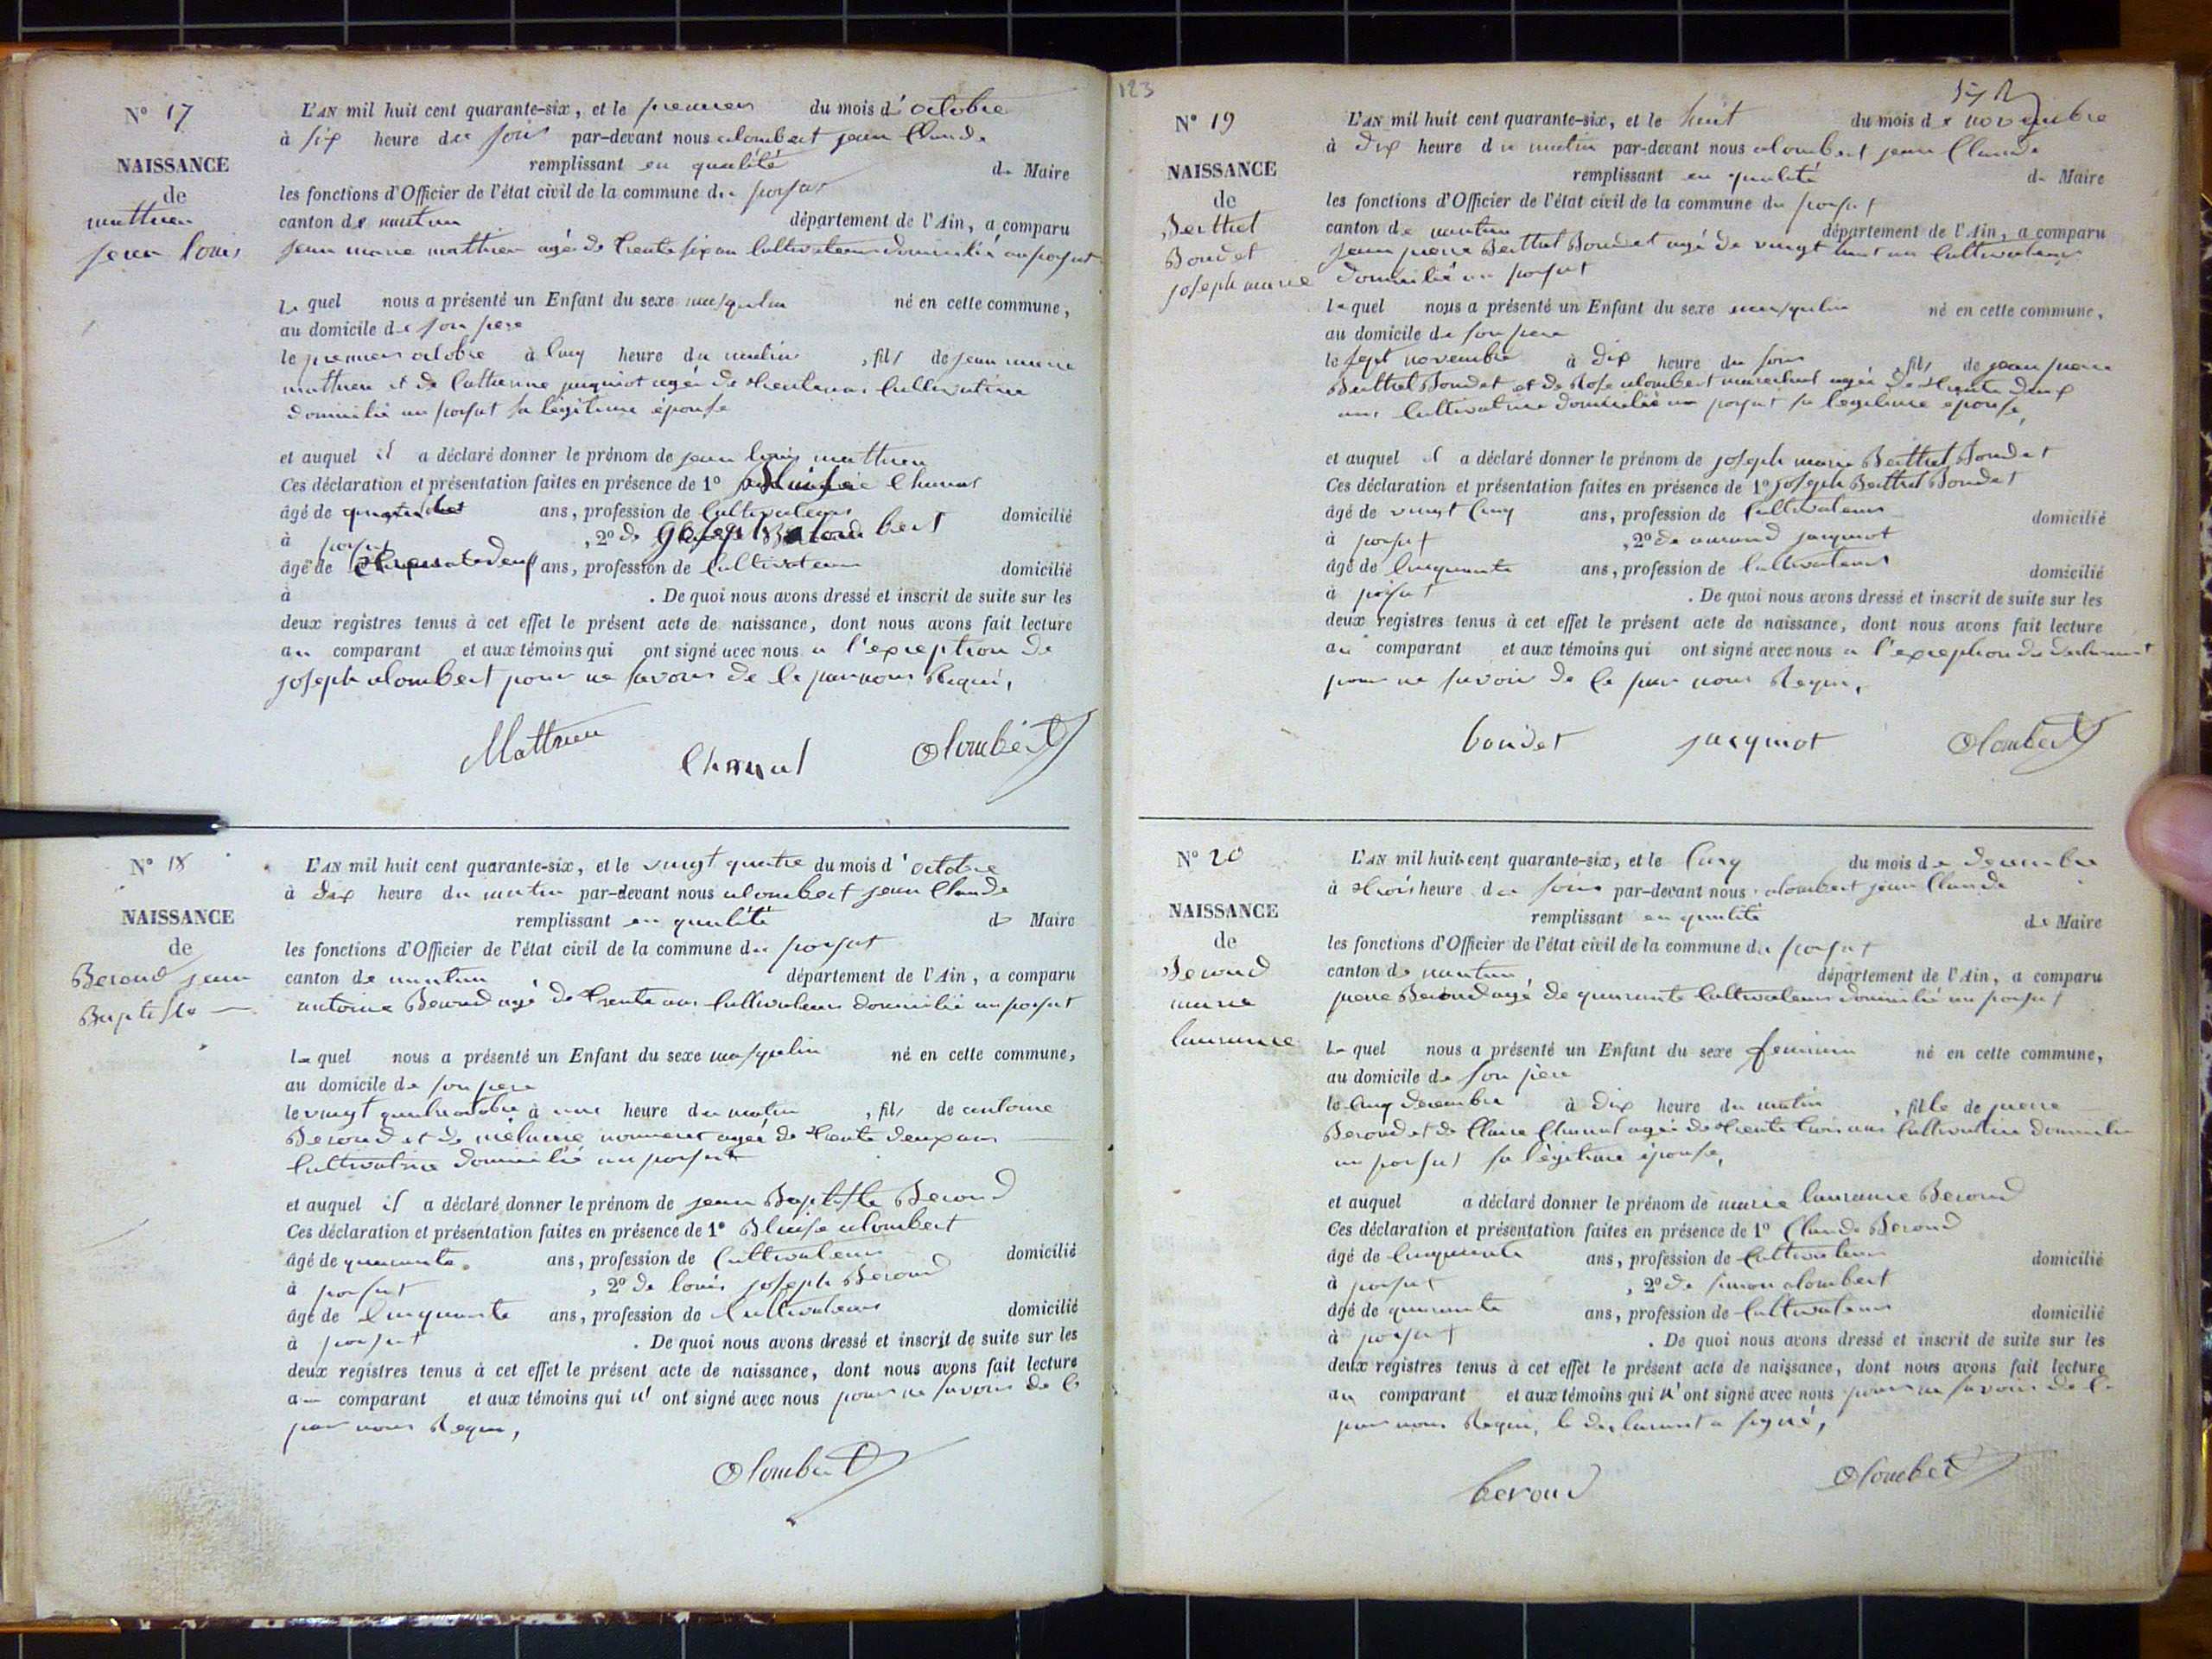 N° 17
NAISSANCE
de
mathieu
jean louis
L'AN mil huit cent quarante-six, et le premier du mois d'octobre
à six heure du soir par-devant nous alombert jean Claude
remplissant en qualité de Maire
les fonctions d'Officier de l'état civil de la commune du
canton de nantua département de l'Ain, a comparu
jean marie mathieu agé de trente six an Cultivateur domicilié au
le quel nous a présenté un Enfant du sexe masqulin né en cette commune,
au domicile de son pere
le premier octobre à Cinq heure du matin, fils de jean marie
mathieu et de Catherine jacquiot agée de trente ans Cultivatrice
domicilié au sa légitime épouse
et auquel il a déclaré donner le prénom de jean louis mathieu
Ces déclaration et présentation faites en présence de 1°
âgé de ans, profession de Cultivateur domicilié
à , 2° de joseph alombert
âgé de ans, profession de Cultivateur domicilié
à . De quoi nous avons dressé et inscrit de suite sur les
deux registres tenus à cet effet le présent acte de naissance, dont nous avons fait lecture
au comparant et aux témoins qui ont signé avec nous a l'exeption de
joseph alombert pour ne savoir de Ce par nous Requi,
Mathieu
alombert
N° 18
NAISSANCE
de
Beroud jean
Baptiste —
L'AN mil huit cent quarante-six, et le vingt quatre du mois d'octobre
à dix heure du matin par-devant nous alombert jean Claude
remplissant en qualité de Maire
les fonctions d'Officier de l'état civil de la commune du
canton de nantua département de l'Ain, a comparu
antoine Beroud agé de trente ans Cultivateur domicilié au
le quel nous a présenté un Enfant du sexe masqulin né en cette commune,
au domicile de son pere
le vingt quatre octobre à une heure du matin, fils de antoine
Beroud et de mélanie agée de trente deux ans
Cultivatrice domicilié au
et auquel il a déclaré donner le prénom de jean Baptiste Beroud
Ces déclaration et présentation faites en présence de 1° Blaise alombert
âgé de quarante ans, profession de Cultivateur domicilié
à , 2° de louis joseph Beroud
âgé de Cinquante ans, profession de Cultivateur domicilié
à . De quoi nous avons dressé et inscrit de suite sur les
deux registres tenus à cet effet le présent acte de naissance, dont nous avons fait lecture
au comparant et aux témoins qui n'ont signé avec nous pour ne savoir de Ce
par nous Requi,
alombert
123
N° 19
NAISSANCE
de
Berthet
Boudet
joseph marie
L'AN mil huit cent quarante-six, et le huit du mois de novembre
à dix heure du matin par-devant nous alombert jean Claude
remplissant en qualité de Maire
les fonctions d'Officier de l'état civil de la commune du
canton de nantua département de l'Ain, a comparu
jean pierre Berthet Boudet agé de vingt huit an Cultivateur
domicilié au
le quel nous a présenté un Enfant du sexe masqulin né en cette commune,
au domicile de son pere
le sept novembre à dix heure du soir, fils de jean pierre
Berthet Boudet et de Rose alombert agée de trente deux
ans Cultivatrice domicilié au sa legitime épouse,
et auquel il a déclaré donner le prénom de joseph marie Berthet Boudet
Ces déclaration et présentation faites en présence de 1° joseph Berthet Boudet
âgé de vingt Cinq ans, profession de Cultivateur domicilié
à , 2° de jacquiot
âgé de Cinquante ans, profession de Cultivateur domicilié
à . De quoi nous avons dressé et inscrit de suite sur les
deux registres tenus à cet effet le présent acte de naissance, dont nous avons fait lecture
au comparant et aux témoins qui ont signé avec nous a l'exeption du declarant
pour ne savoir de Ce par nous Requi,
boudet jacquiot alombert
N° 20
NAISSANCE
de
Beroud
marie
laurance
L'AN mil huit cent quarante-six, et le Cinq du mois de decembre
à trois heure du soir par-devant nous alombert jean Claude
remplissant en qualité de Maire
les fonctions d'Officier de l'état civil de la commune du
canton de nantua département de l'Ain, a comparu
pierre Beroud agé de quarante Cultivateur domicilié au
le quel nous a présenté un Enfant du sexe feminin né en cette commune,
au domicile de son père
le Cinq decembre à dix heure du matin, fille de pierre
Beroud et de Claire agée de trente trois ans Cultivatrice domicilié
au sa légitime épouse,
et auquel a déclaré donner le prénom de marie laurance Beroud
Ces déclaration et présentation faites en présence de 1° Claude Beroud
âgé de Cinquante ans, profession de Cultivateur domicilié
à , 2° de simon alombert
âgé de quarante ans, profession de Cultivateur domicilié
à . De quoi nous avons dressé et inscrit de suite sur les
deux registres tenus à cet effet le présent acte de naissance, dont nous avons fait lecture
au comparant et aux témoins qui n'ont signé avec nous pour ne savoir de Ce
par nous Requi, le declarant a signé,
beroud alombert